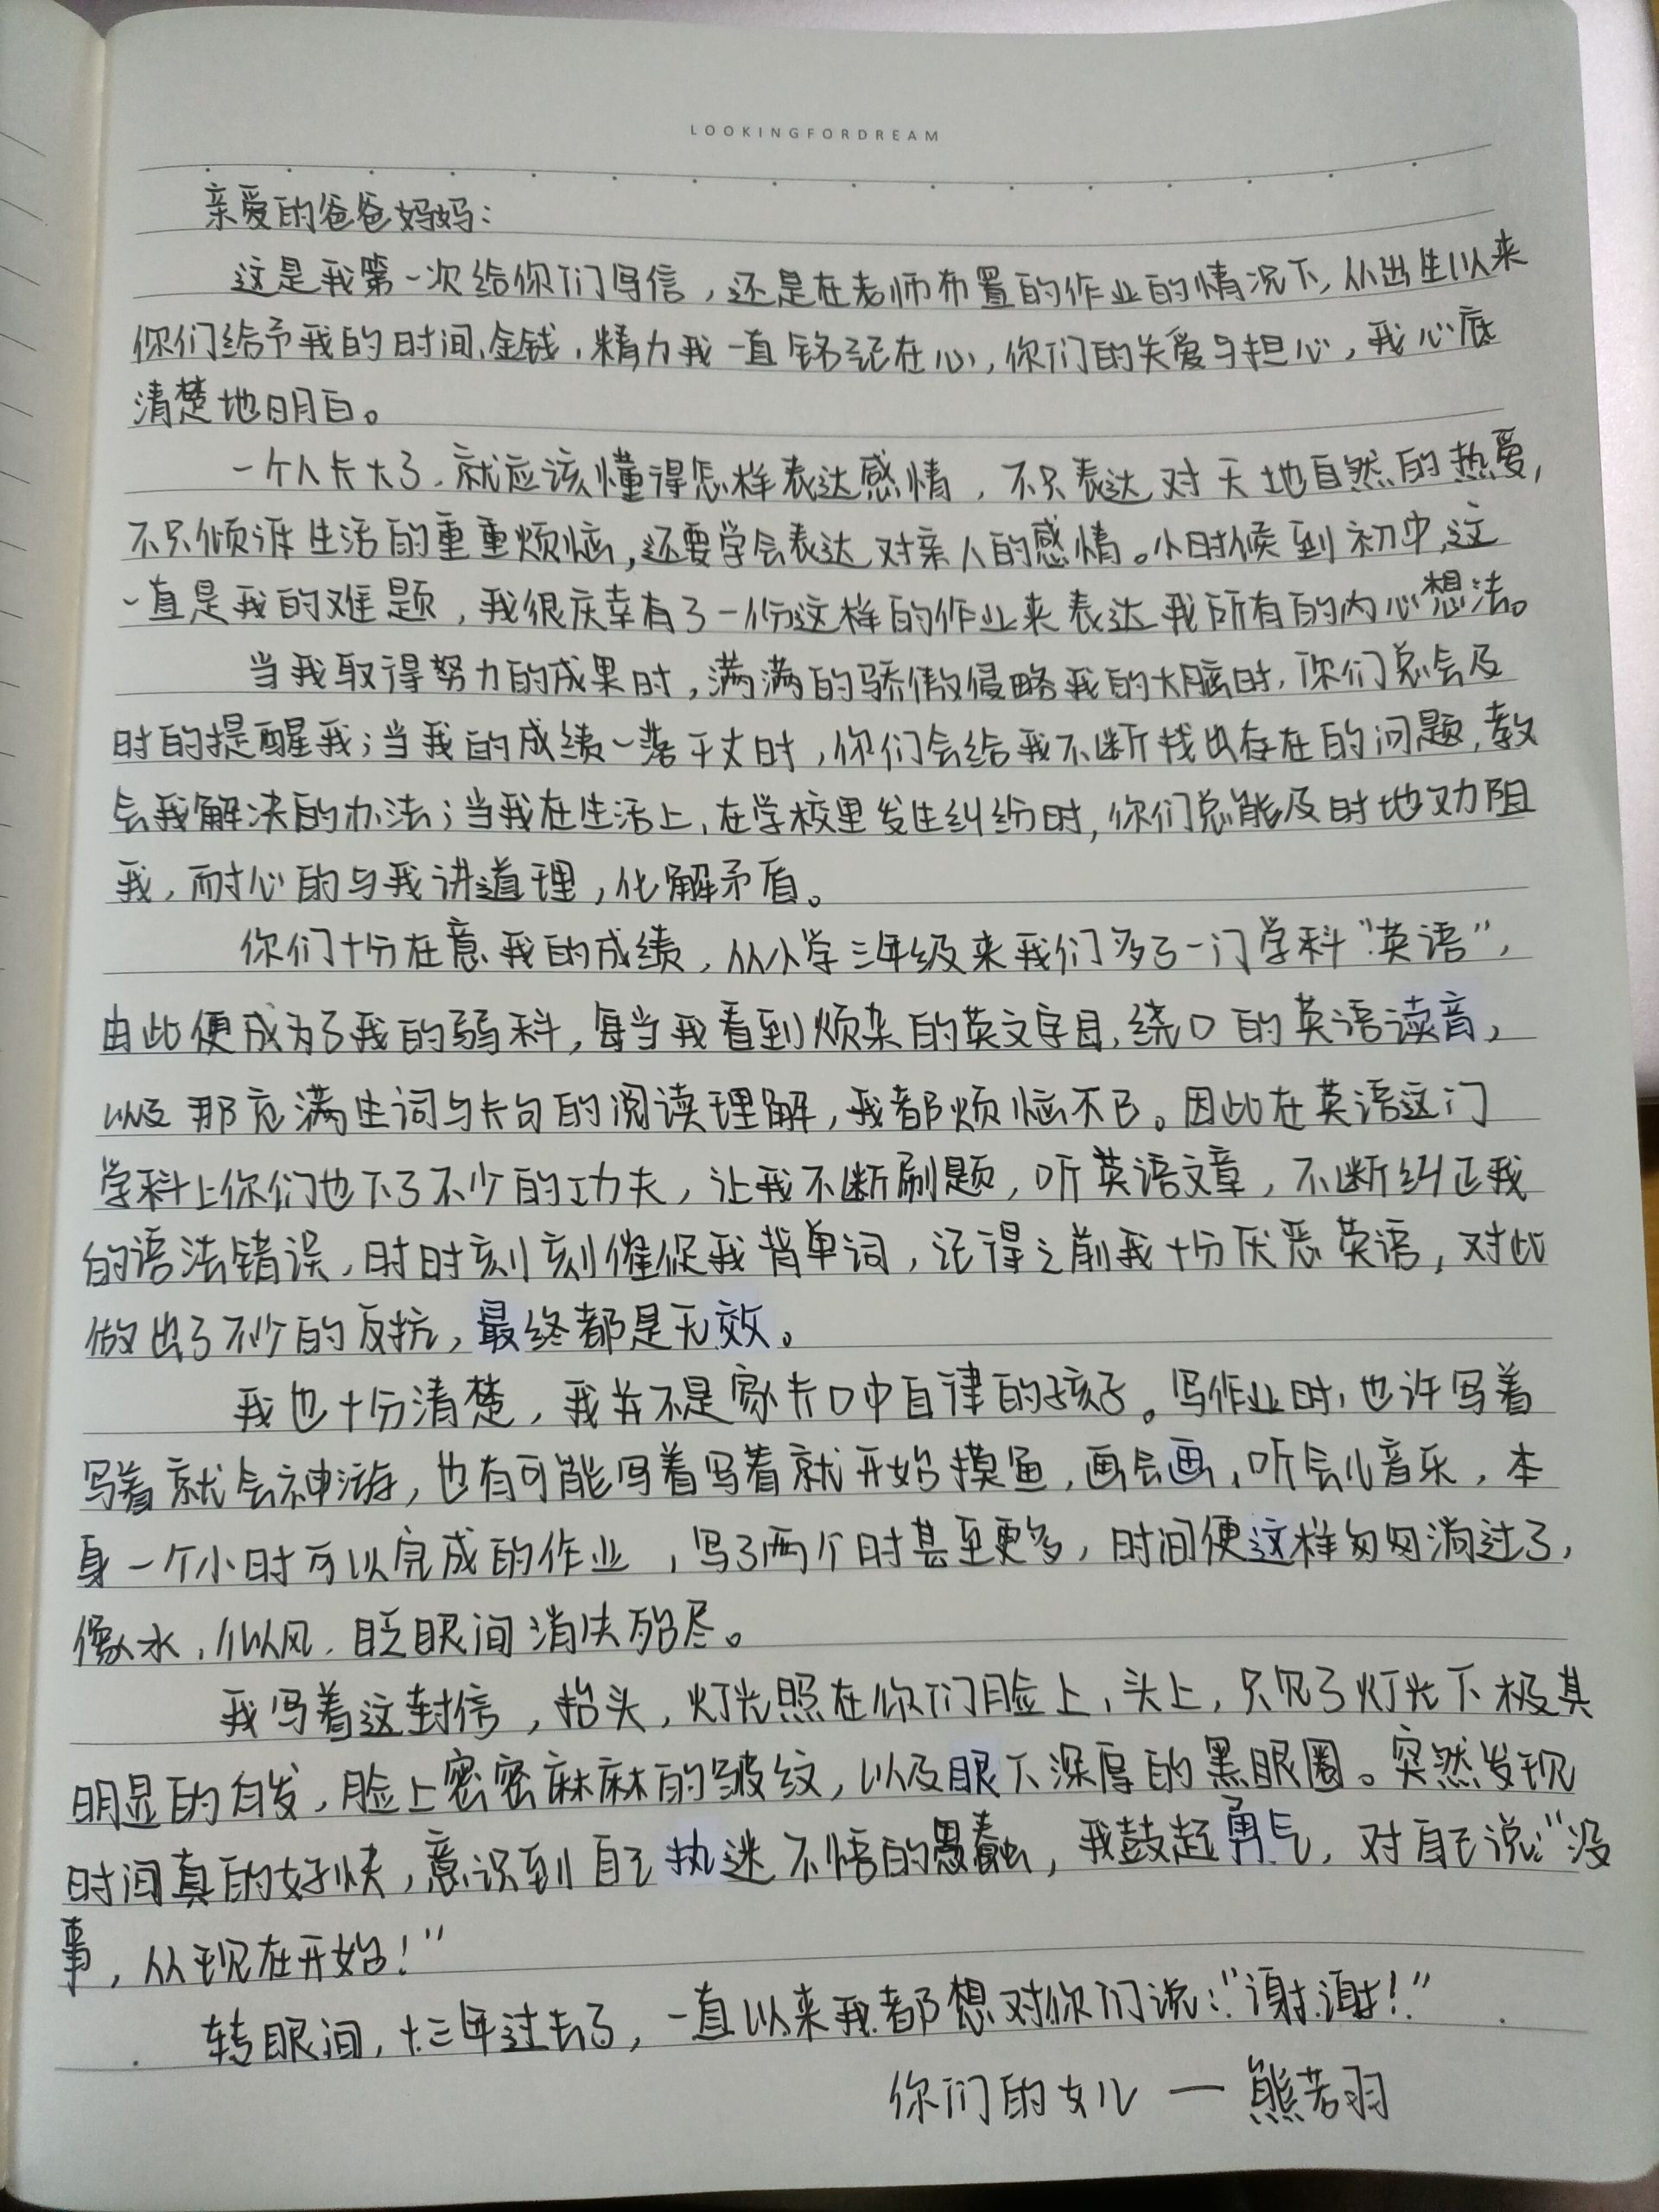 LOOKINGFORDREAM
亲爱的爸爸妈妈：
这是我第一次给你们写信，还是在老师布置的作业的情况下，从出生以来
你们给予我的时间、金钱、精力我一直铭记在心，你们的关爱与担心，我心底
清楚地明白。
一个人长大了，就应该懂得怎样表达感情，不只表达对天地自然的热爱，
不只倾诉生活的重重烦恼，还要学会表达对亲人的感情。小时候到初中，这
一直是我的难题，我很庆幸有了一份这样的作业来表达我所有的内心想法。
当我取得努力的成果时，满满的骄傲侵略我的大脑时，你们总会及
时的提醒我；当我的成绩一落千丈时，你们会给我不断找出存在的问题，教
会我解决的办法；当我在生活上，在学校里发生纠纷时，你们总能及时地劝阻
我，耐心的与我讲道理，化解矛盾。
你们十分在意我的成绩，从小学三年级来我们多了一门学科“英语”，
由此便成为了我的弱科，每当我看到烦杂的英文字目，绕口的英语读音，
以及那充满生词与长句的阅读理解，我都烦恼不已。因此在英语这门
学科上你们也下了不少的功夫，让我不断刷题，听英语文章，不断纠正我
的语法错误，时时刻刻催促我背单词，记得之前我十分厌恶英语，对此
做出了不少的反抗，最终都是无效。
我也十分清楚，我并不是家长口中自律的孩子。写作业时，也许写着
写着就会神游，也有可能写着写着就开始摸鱼，画会画，听会儿音乐，本
身一个小时可以完成的作业，写了两个时甚至更多，时间便这样匆匆淌过了，
像水，似风，眨眼间消失殆尽。
我写着这封信，抬头，灯光照在你们脸上，头上，只见了灯光下极其
明显的白发，脸上密密麻麻的皱纹，以及眼下深厚的黑眼圈。突然发现
时间真的好快，意识到自己执迷不悟的愚蠢，我鼓起勇气，对自己说：“没
事，从现在开始！”
转眼间，十三年过去了，一直以来我都想对你们说：“谢谢！”
你们的女儿 — 熊若羽